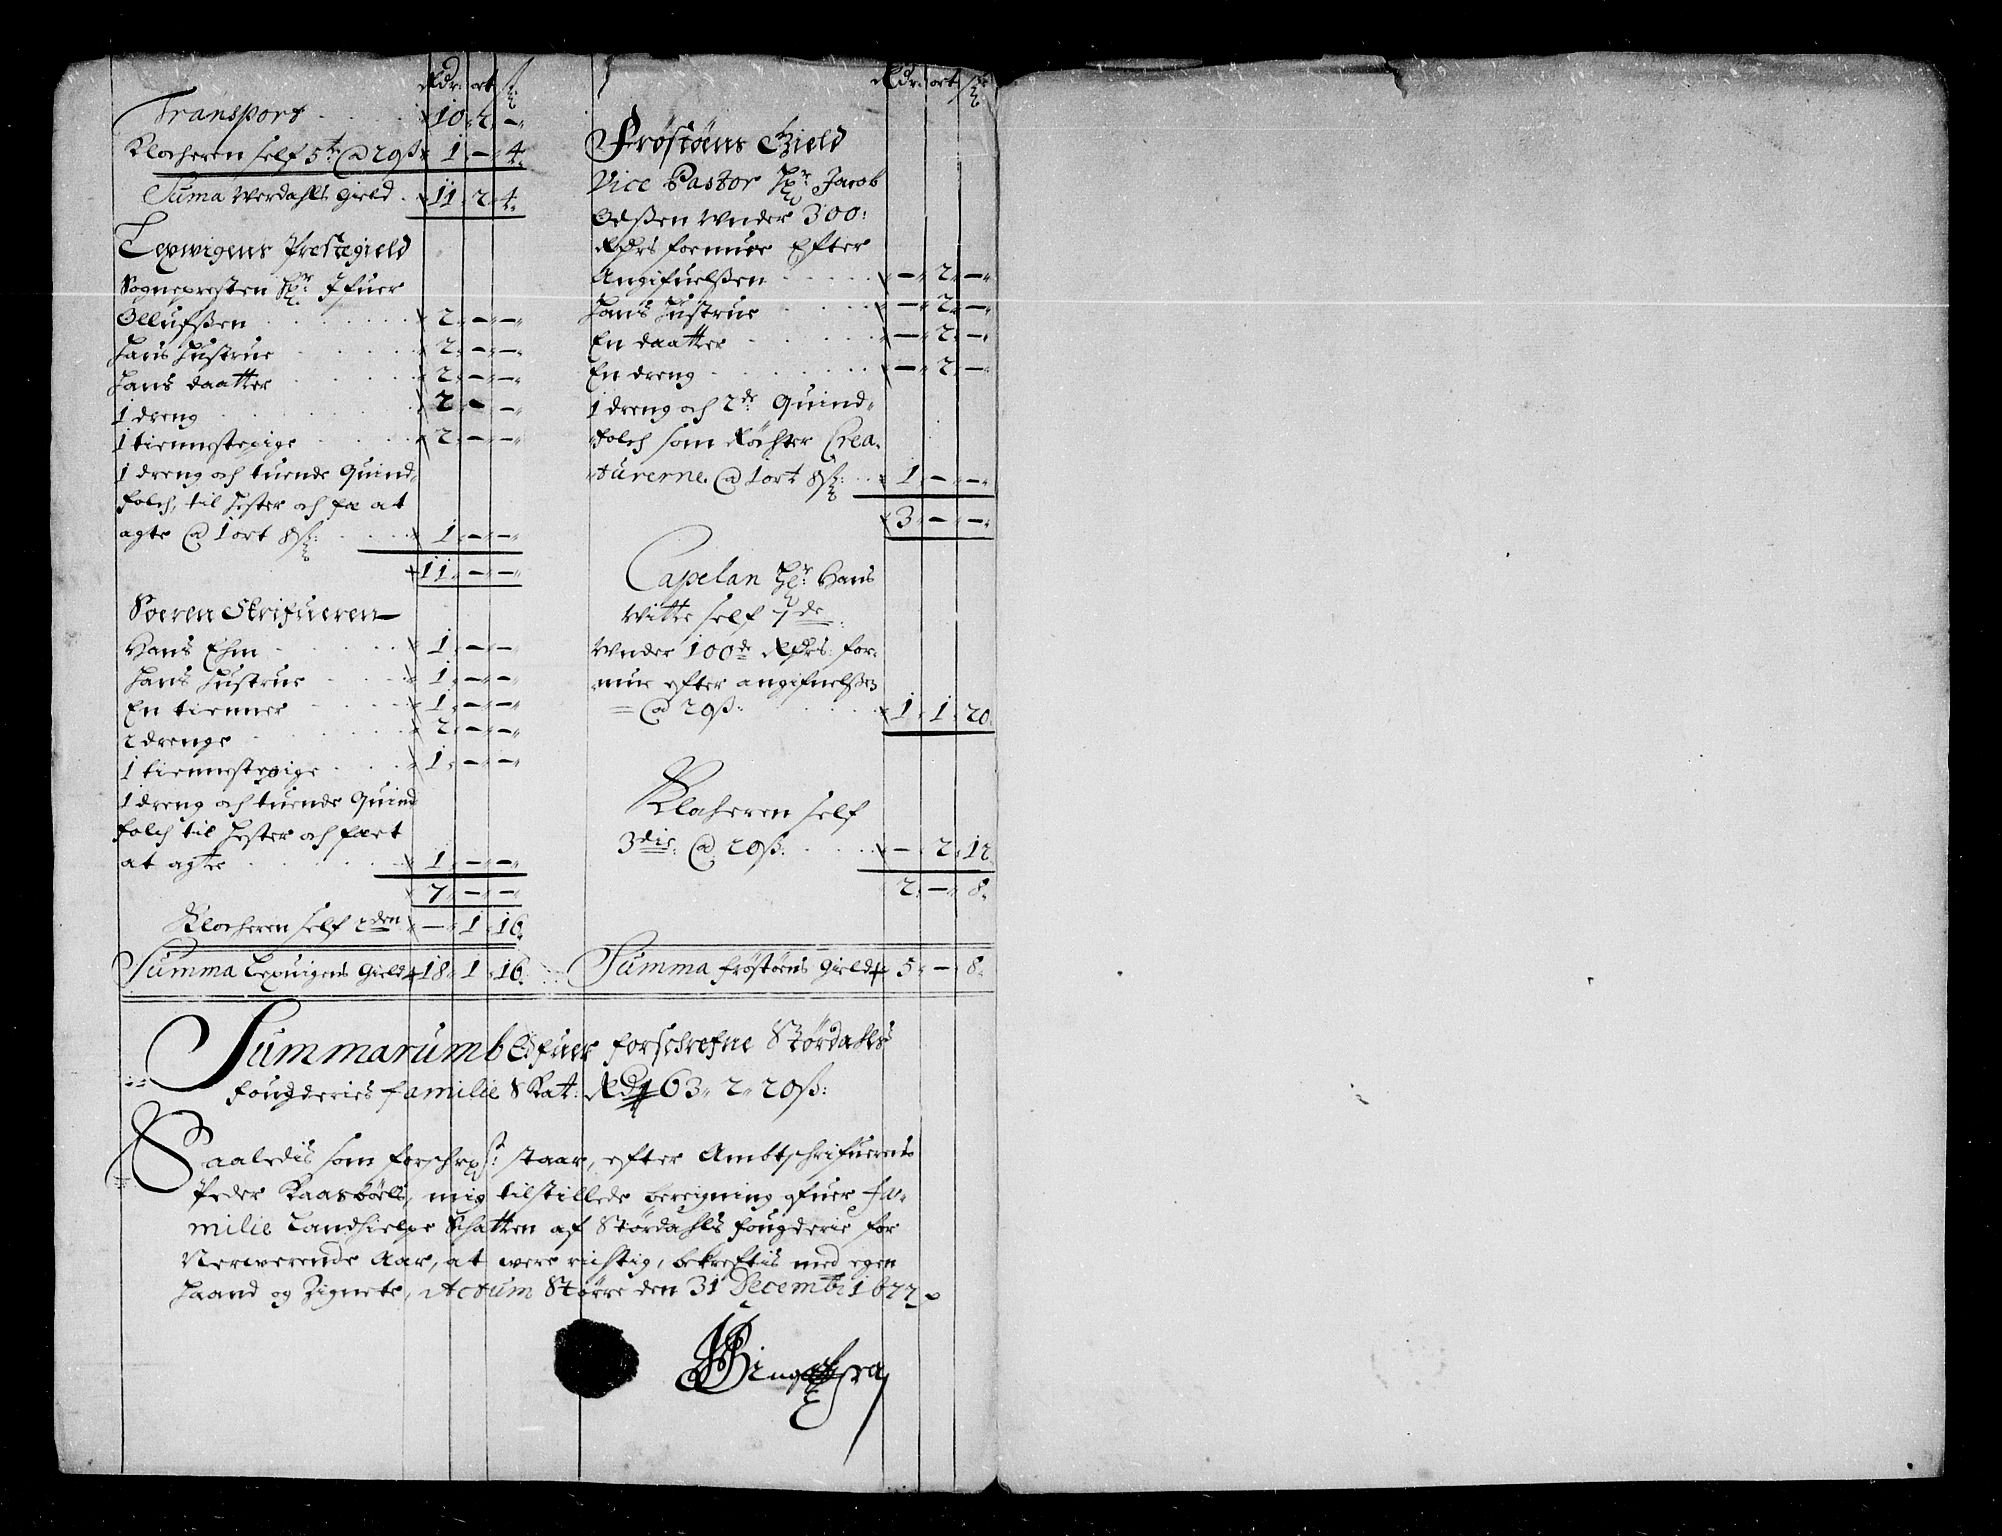 Rdr. ort ß
Transport 10. 2. –
Klocheren self 5te @ 20ß 1. – 4.
Suma Werdahls Gield 11. 2. 4.
Lexwigens Prestegield
Sognepresten Hr. Ifuer
Ollufsßen 2. – –
Hans Hustrue 2. – –
Hans daatter 2. – –
1 dreng 2. – –
1 tiennestepige 2. – –
1 dreng och tuende Quind
folch, til Hester och fæ at
agte @ 1 ort 8ß: 1. – –
11. – –
Soeren Skrifueren
Hans Ehm 1. – –
Hans Hustrue 1. – –
En tienner 1. – –
2 drenge 2. – –
1 tiennestepige 1. – –
1 dreng och tuende Quind
folch til Hester och fæet
at agte 1. – –
7. – –
Klocheren self 2den – 1. 16.
Summa Lexuigens Gield 18. 1. 16.
Rdr. ort ß
Fröstöens Gield
Vice Pastor Hr. Jacob
Odßen Wnder 300:
Rdrs formue Efter
Angifuelßen – 2. –
Hans Hustrue – 2. –
En daatter – 2. –
En dreng – 2. –
1 dreng och 2de Quind
folch som Röchter Crea-
turerne. @ 1 ort 8ß: 1. – –
3. – –
Capelan Hr. Hans
Witte self 7de
Wnder 100de Rdrs: for-
mue efter angifuelßen
= @ 20ß: 1. 1. 20.
Klocheren self
3die: @ 20ß: – 2. 12.
2. – 8.
Summa fröstöens Gield 5. – 8.
Summarum ofuer forschrefne Stördahls
fougderies familie Skat: Rdr 63. 2. 20ß:
Saaledis som forschr: staar, efter Ambtschrifuerens
Peder Kaasböls, mig tilstillede beregning ofuer fa-
milie Landhielpe Schatten af Stördahls fougderie for
Nerwerende Aar, at were richtig, bekreftis med egen
Haand og Zignete, Actum Större den 31 Decembr 1677